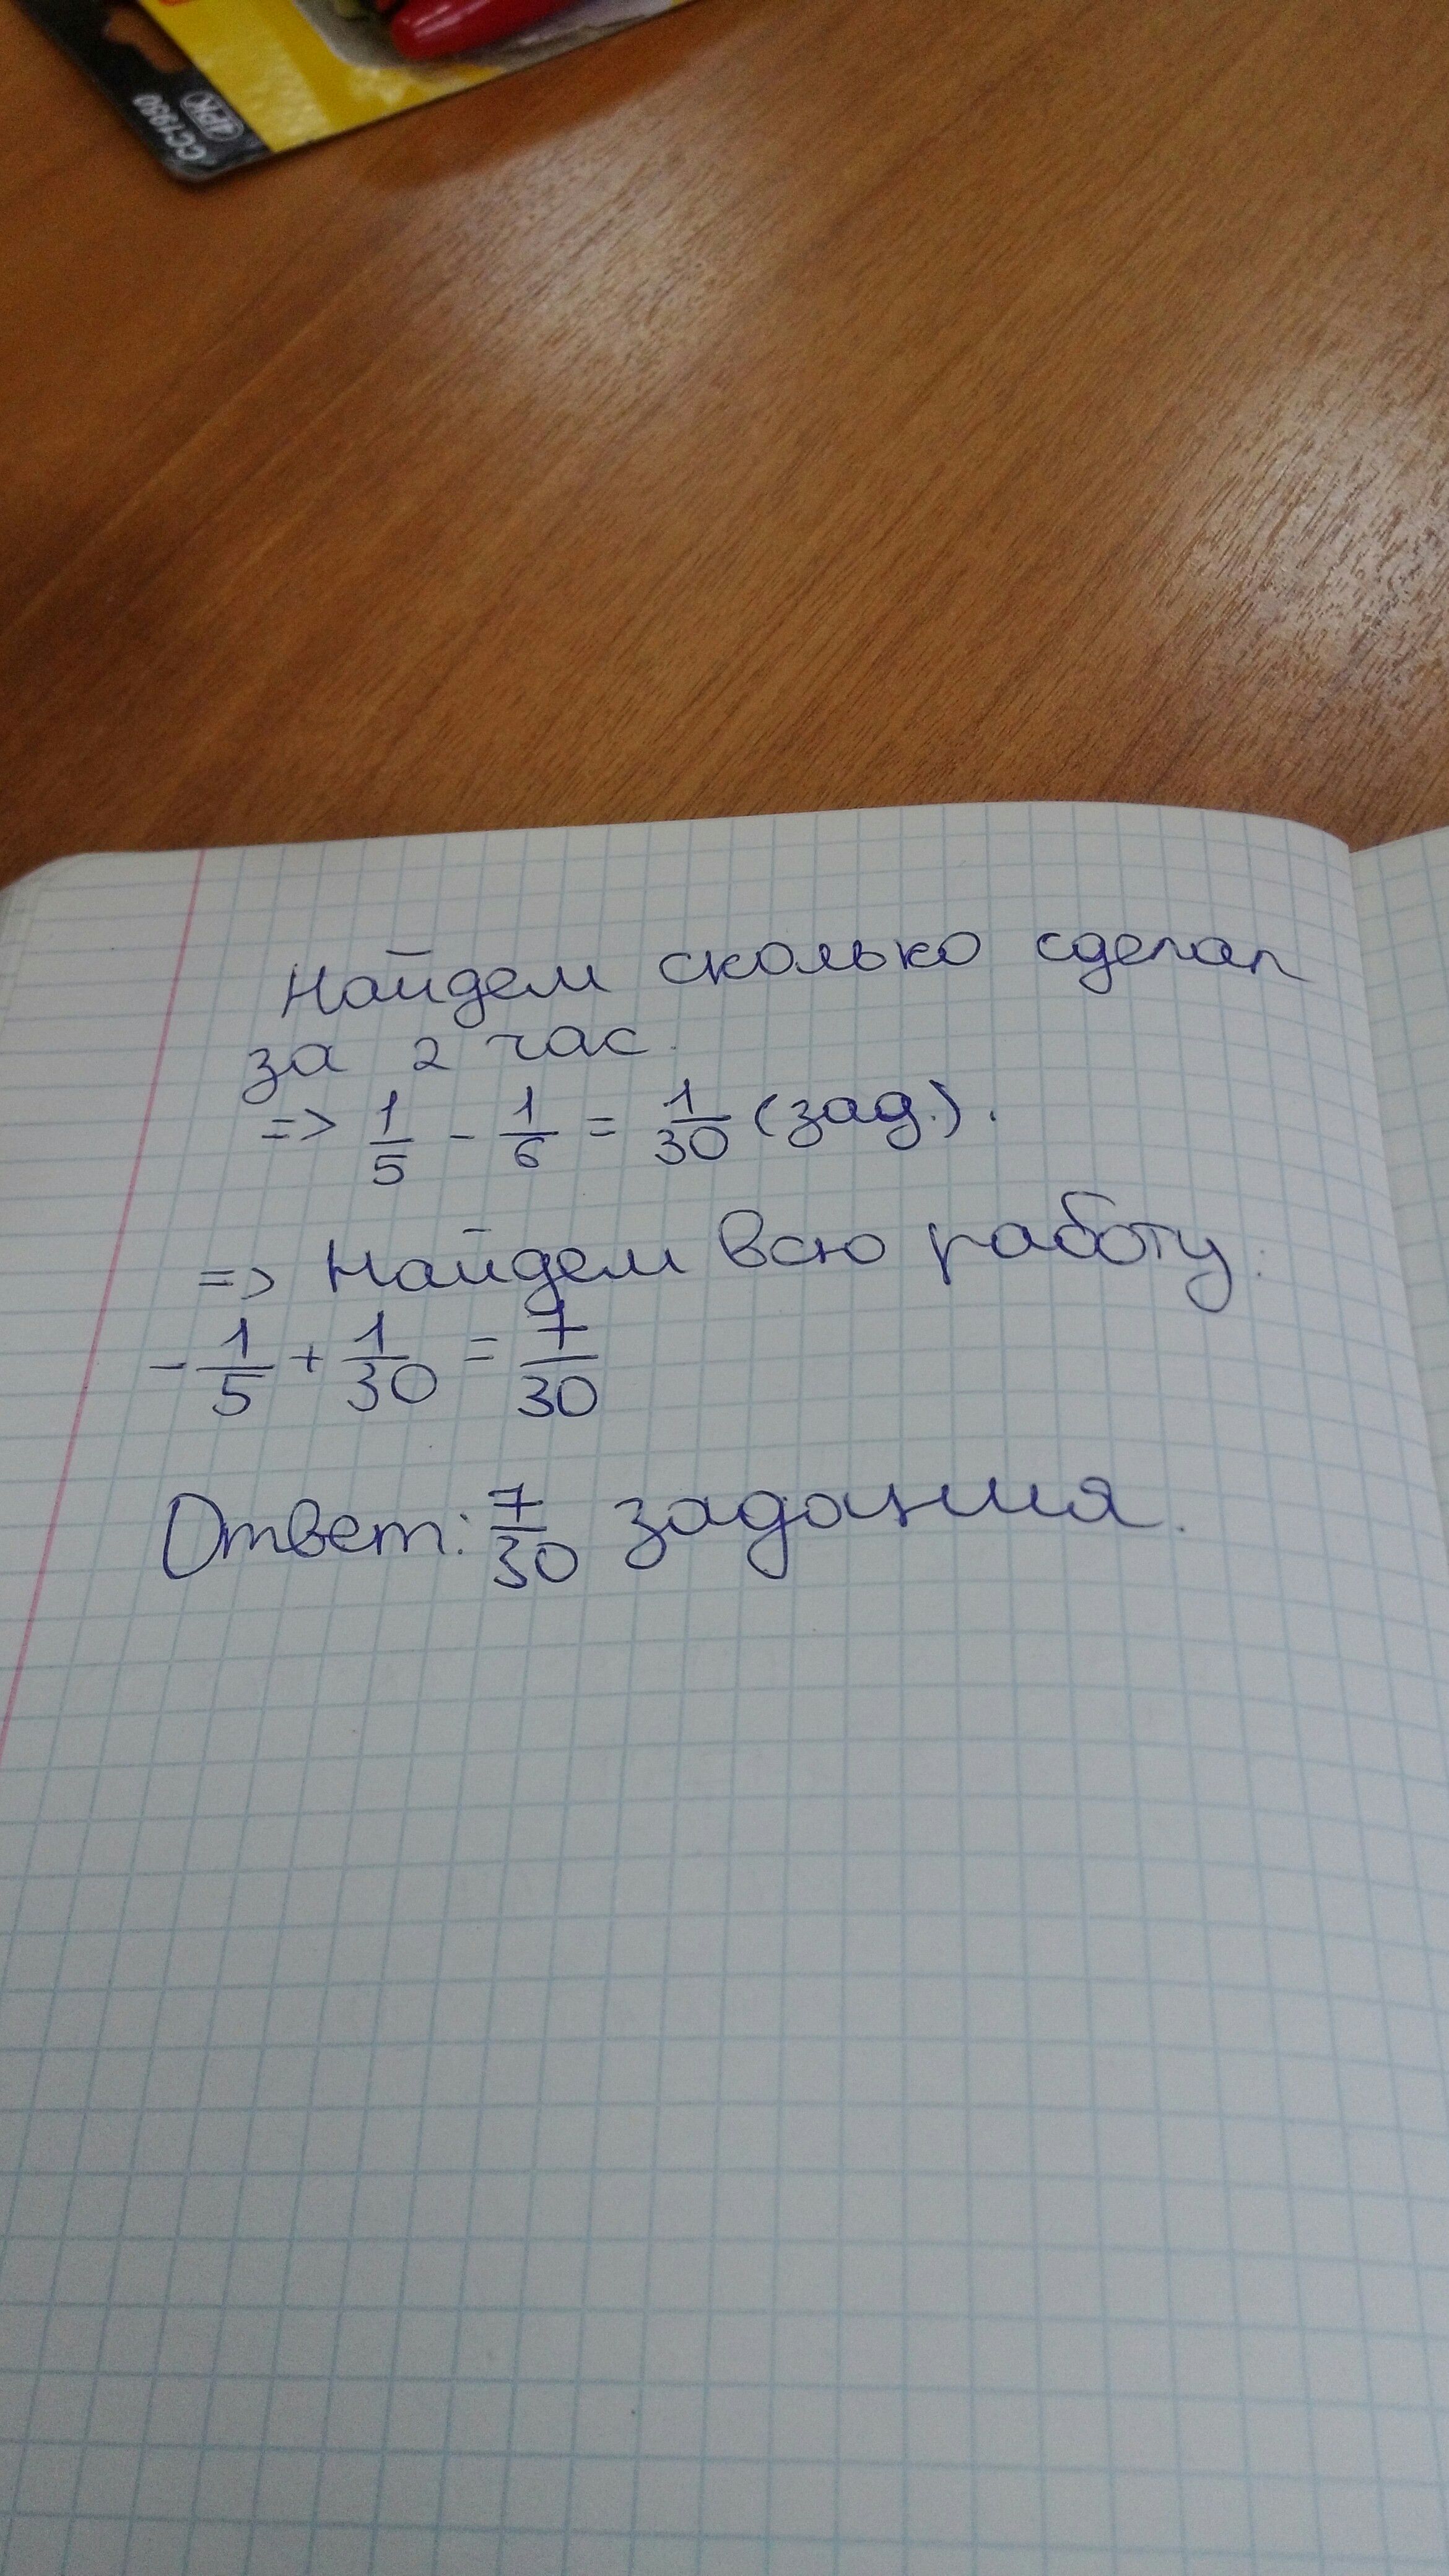 CC1930
4PK
Найдем сколько сделал
за 2 час.
=> 1/5 - 1/6 = 1/30 (зад.).
=> Найдем всю работу:
- 1/5 + 1/30 = 7/30
Ответ: 7/30 задания.